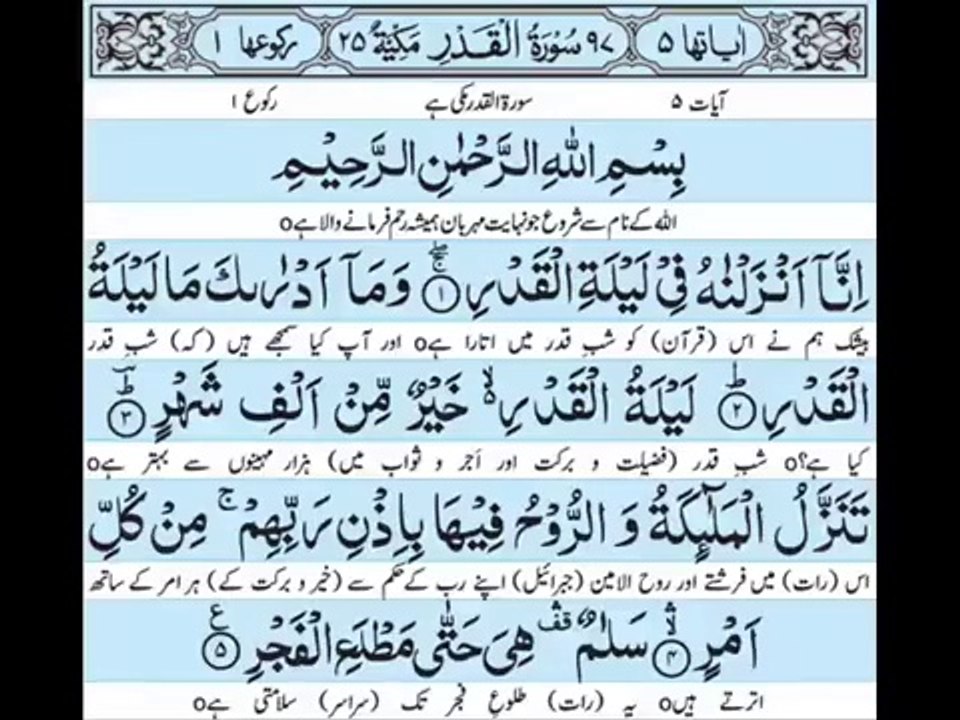 اٰیاتھا ۵ ۹۷ سُوْرَۃُ الْقَدْرِ مَکِّیَّۃٌ ۲۵ رکوعھا ۱
آیات ۵ سورۃ القدر مکی ہے رکوع ۱
بِسْمِ اللّٰهِ الرَّحْمٰنِ الرَّحِیْمِ
اللہ کے نام سے شروع جو نہایت مہربان ہمیشہ رحم فرمانے والا ہےo
اِنَّاۤ اَنْزَلْنٰهُ فِیْ لَیْلَةِ الْقَدْرِ ۚۖ﴿۱﴾ وَ مَاۤ اَدْرٰىكَ مَا لَیْلَةُ
بیشک ہم نے اس (قرآن) کو شبِ قدر میں اتارا ہےo اور آپ کیا سمجھے ہیں (کہ) شبِ قدر
الْقَدْرِ ؕ﴿۲﴾ لَیْلَةُ الْقَدْرِ ۙ۬ خَیْرٌ مِّنْ اَلْفِ شَهْرٍ ؕؔ﴿۳﴾
کیا ہے؟o شبِ قدر (فضیلت و برکت اور اَجر و ثواب میں) ہزار مہینوں سے بہتر ہےo
تَنَزَّلُ الْمَلٰٓىِٕكَةُ وَ الرُّوْحُ فِیْهَا بِاِذْنِ رَبِّهِمْ ۚ مِنْ كُلِّ
اس (رات) میں فرشتے اور روح الامین (جبرائیل) اپنے رب کے حکم سے (خیر و برکت کے) ہر امر کے ساتھ
اَمْرٍ ۙۛ﴿۴﴾ سَلٰمٌ ۛ۫ هِیَ حَتّٰى مَطْلَعِ الْفَجْرِ ﴿۵﴾ ع
اترتے ہیںo یہ (رات) طلوعِ فجر تک (سراسر) سلامتی ہےo